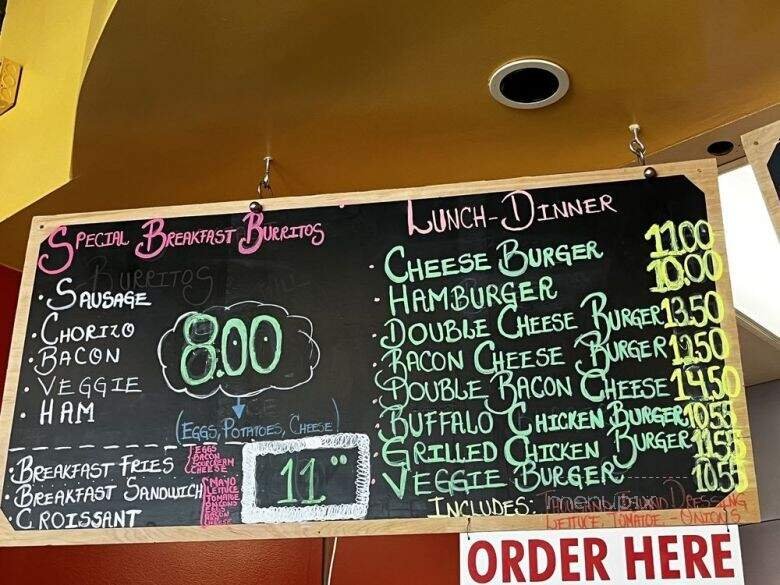 SPECIAL BREAKFAST BURRITOS
BURRITOS
• SAUSAGE
• CHORIZO
• BACON
• VEGGIE
• HAM
8.00
(EGGS, POTATOES, CHEESE)
• BREAKFAST FRIES
EGGS
BACON
SOURCREAM
CHEESE
• BREAKFAST SANDWICH
CROISSANT
MAYO
LETTUCE
TOMATOE
CHEESE
11"
LUNCH-DINNER
• CHEESE BURGER 11.00
• HAMBURGER 10.00
• DOUBLE CHEESE BURGER 13.50
• BACON CHEESE BURGER 12.50
• DOUBLE BACON CHEESE 14.50
• BUFFALO CHICKEN BURGER 10.55
• GRILLED CHICKEN BURGER 11.55
• VEGGIE BURGER 10.55
INCLUDES: DRESSING
LETTUCE, TOMATOE - ONIONS
ORDER HERE